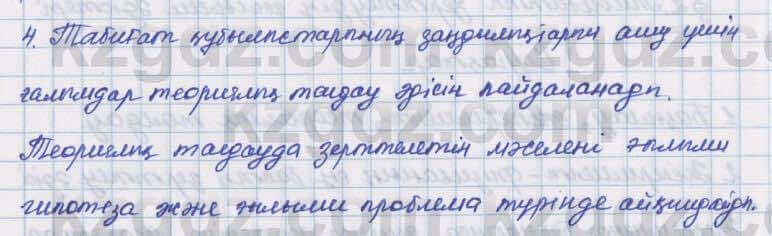 4. Табиғат құбылыстарының заңдылықтарын ашу үшін
ғалымдар теориялық талдау әдісін пайдаланады.
Теориялық талдауда зерттелетін мәселені ғылыми
гипотеза және ғылыми проблема түрінде айқындайды.
kzgdz.com